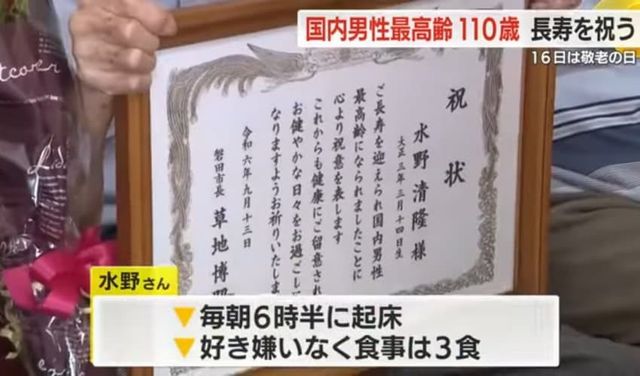 国内男性最高齢110歳 長寿を祝う
16日は敬老の日
祝状
水野清隆様
大正三年三月十四日生
ご長寿を迎えられ国内男性
最高齢になられましたことに
心より祝意を表します
これからも健康にご留意され
お健やかな日々をお過ごしに
なりますようお祈りいたしま
令和六年九月十三日
磐田市長 草地博
水野さん
▼毎朝6時半に起床
▼好き嫌いなく食事は3食